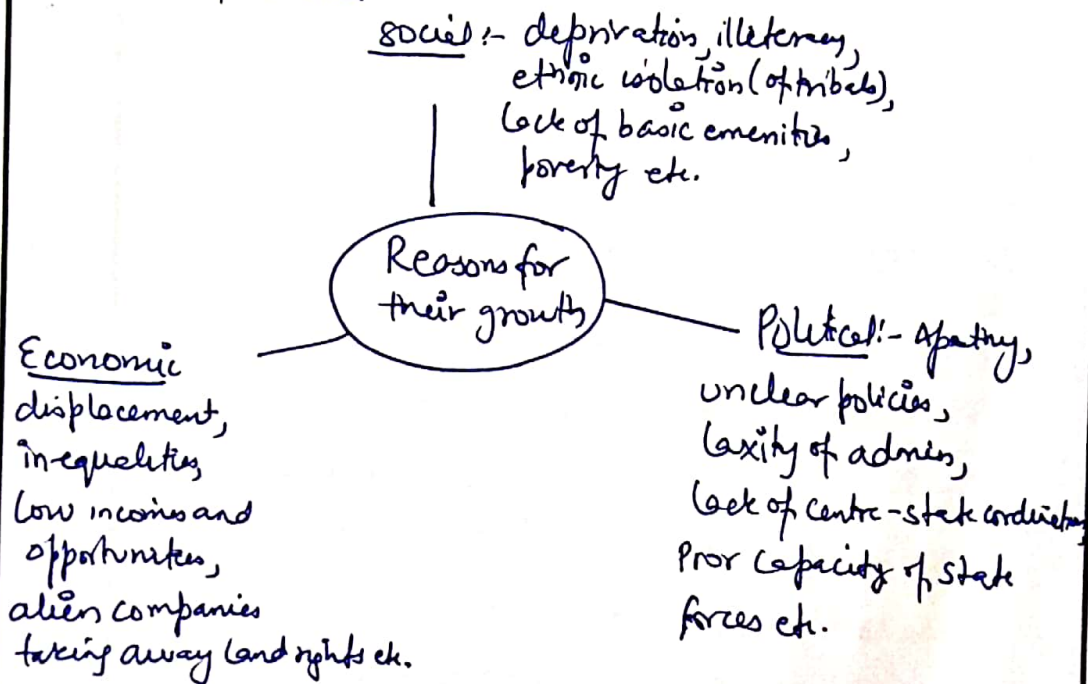 Social :- deprivation, illiteracy,
ethnic isolation (of tribals),
lack of basic amenities,
poverty etc.
Reasons for
their growth
Economic
displacement,
inequalities,
low incomes and
opportunities,
alien companies
taking away land rights etc.
Political :- Apathy,
unclear policies,
laxity of admin,
lack of centre-state cordination,
Poor capacity of state
forces etc.